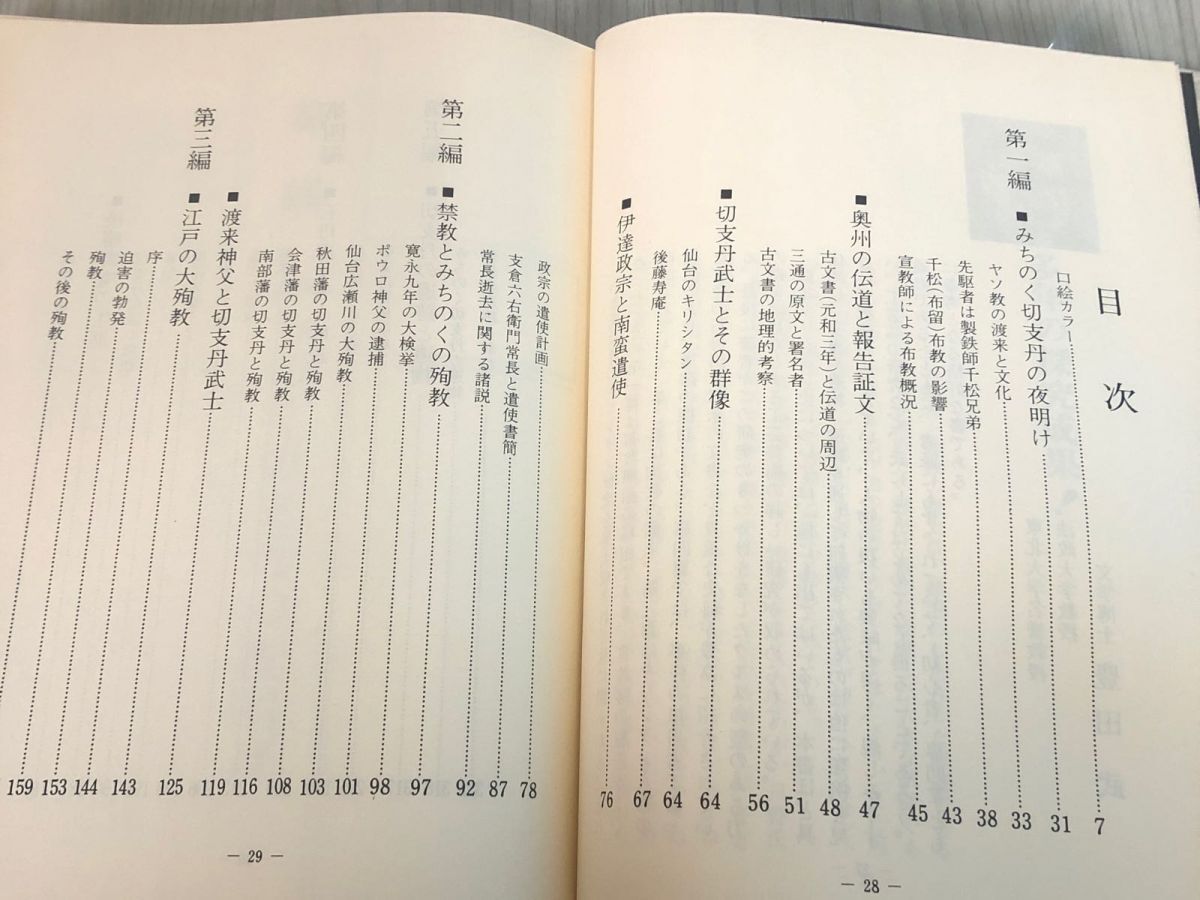 目次
口絵カラー……7
第一編
■みちのく切支丹の夜明け……31
ヤソ教の渡来と文化……33
先駆者は製鉄師千松兄弟……38
千松(布留)布教の影響……43
宣教師による布教概況……45
■奥州の伝道と報告証文……47
古文書(元和三年)と伝道の周辺……48
三通の原文と署名者……51
古文書の地理的考察……56
■切支丹武士とその群像……64
仙台のキリシタン……64
後藤寿庵……67
■伊達政宗と南蛮遣使……76
— 28 —
政宗の遣使計画……78
支倉六右衛門常長と遣使書簡……87
常長逝去に関する諸説……92
第二編
■禁教とみちのくの殉教
寛永九年の大検挙……97
ポウロ神父の逮捕……98
仙台広瀬川の大殉教……101
秋田藩の切支丹と殉教……103
会津藩の切支丹と殉教……108
南部藩の切支丹と殉教……116
■渡来神父と切支丹武士……119
第三編
■江戸の大殉教……125
序……143
迫害の勃発……144
殉教……153
その後の殉教……159
— 29 —